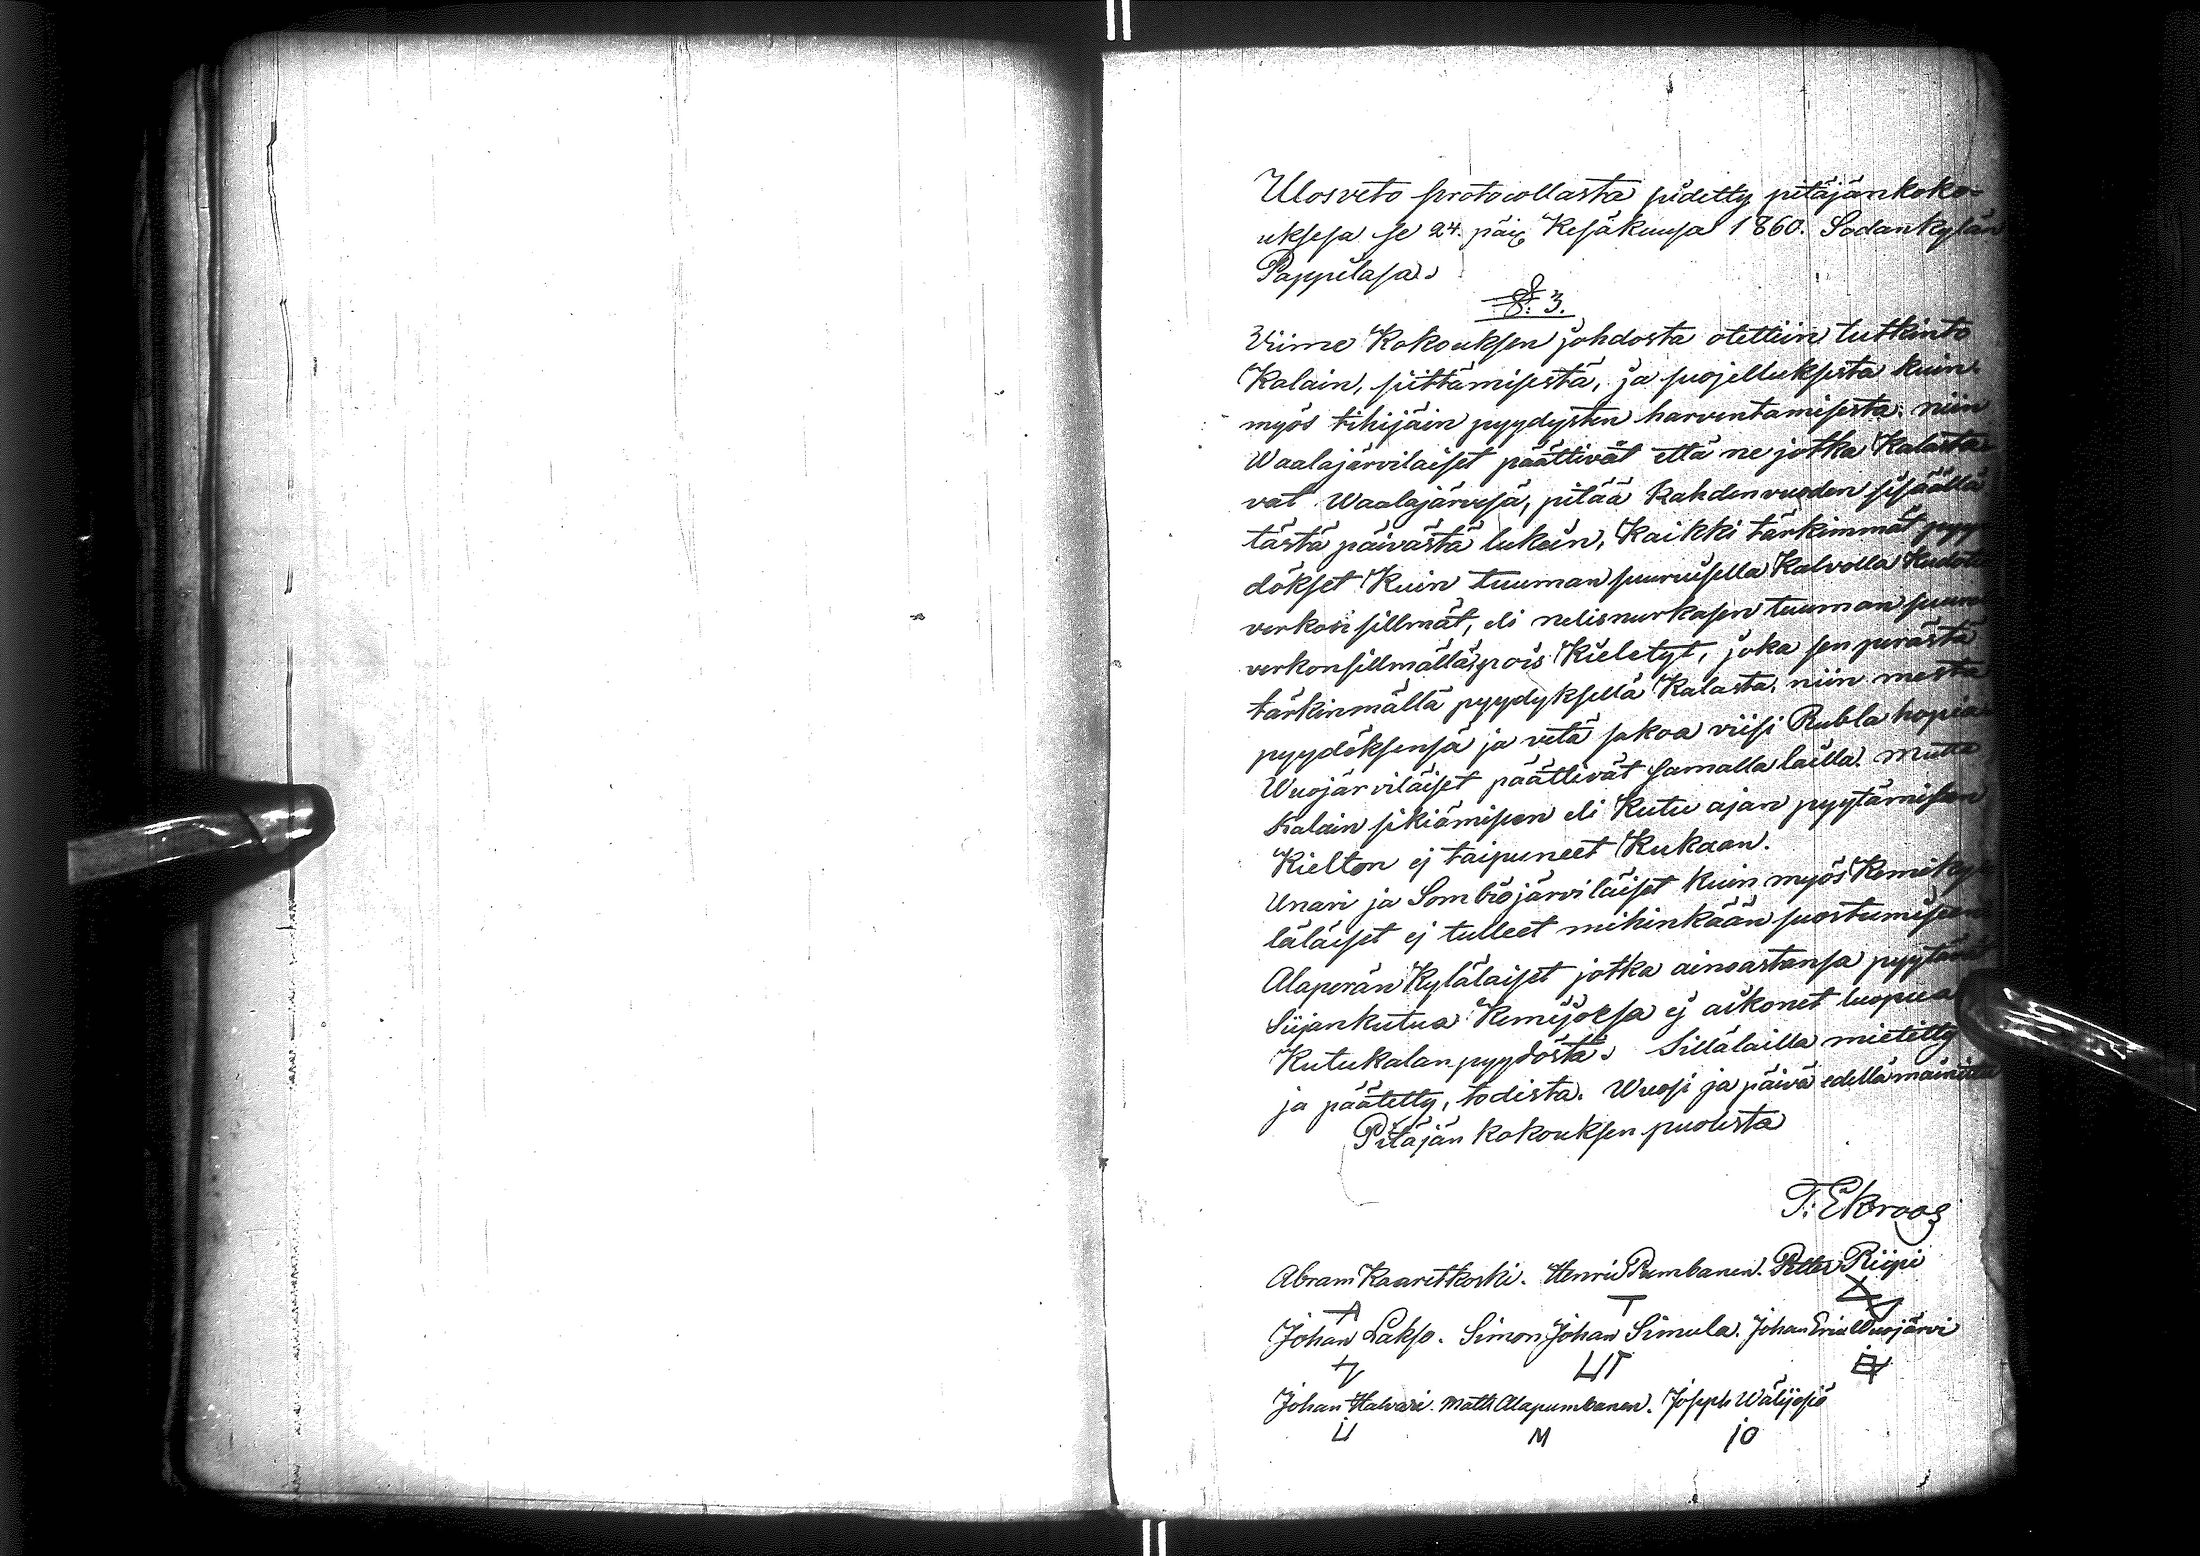 Ulosveto protocollasta pidetty pitäjänkoko-
uksesa se 24. päiv Kesäkuusa 1860. Sodankylän
Pappilasa.
§. 3.
Viime Kokouksen johdosta otettiin tutkinto
Kalain, siittämisestä, ja suojelluksesta kuin
myös tihijäin pyydysten harventamisesta: niin
Waalajärviläiset päättivät että ne jotka Kalasta-
vat Waalajärvesä, pitää Kahden vuoden sisäällä
tästä päivästä lukein, Kaikki tärkimmät pyy
dökset Kuin tuuman suuruisella Kalvolla Kudotu
verkon sillmät, eli nelisnurkasen tuuman suuru
verkonsillmällä, pois Kieletyt, joka sen perästä
tärkinmällä pyydyksellä Kalasta, niin mesta
pyydöksensä ja vetä sakoa viisi Rubla hopia
Wuojärviläiset päättivät samalla lailla. Mutta
Kalain sikiämisen eli Kutu ajan pyytämisen
Kielton ej taipuneet Kukaan.
Unari ja Sombiojärviläiset kuin myös Kemiky-
läläiset ej tulleet mihinkään suostumiseen
Alaperän Kyläläiset jotka ainoastansa pyytävä
Siijankutua Kemijoesa ej aikonet luopua
Kutukalan pyydöstä. Sillälailla mietitty
ja päätetty, todista. Wuosi ja päivä edellämainittu
Pitäjän Kokouksen puolesta
T. Ekroos
Abram Kaaretkoski. Henric Pumbanen. Petter Riipi
A T
Johan Lakso. Simon Johan Simula. Johan Eric Wuojärvi
Johan Halvari. Matts Alapumbanen. Joseph Wälijesiö
M JO